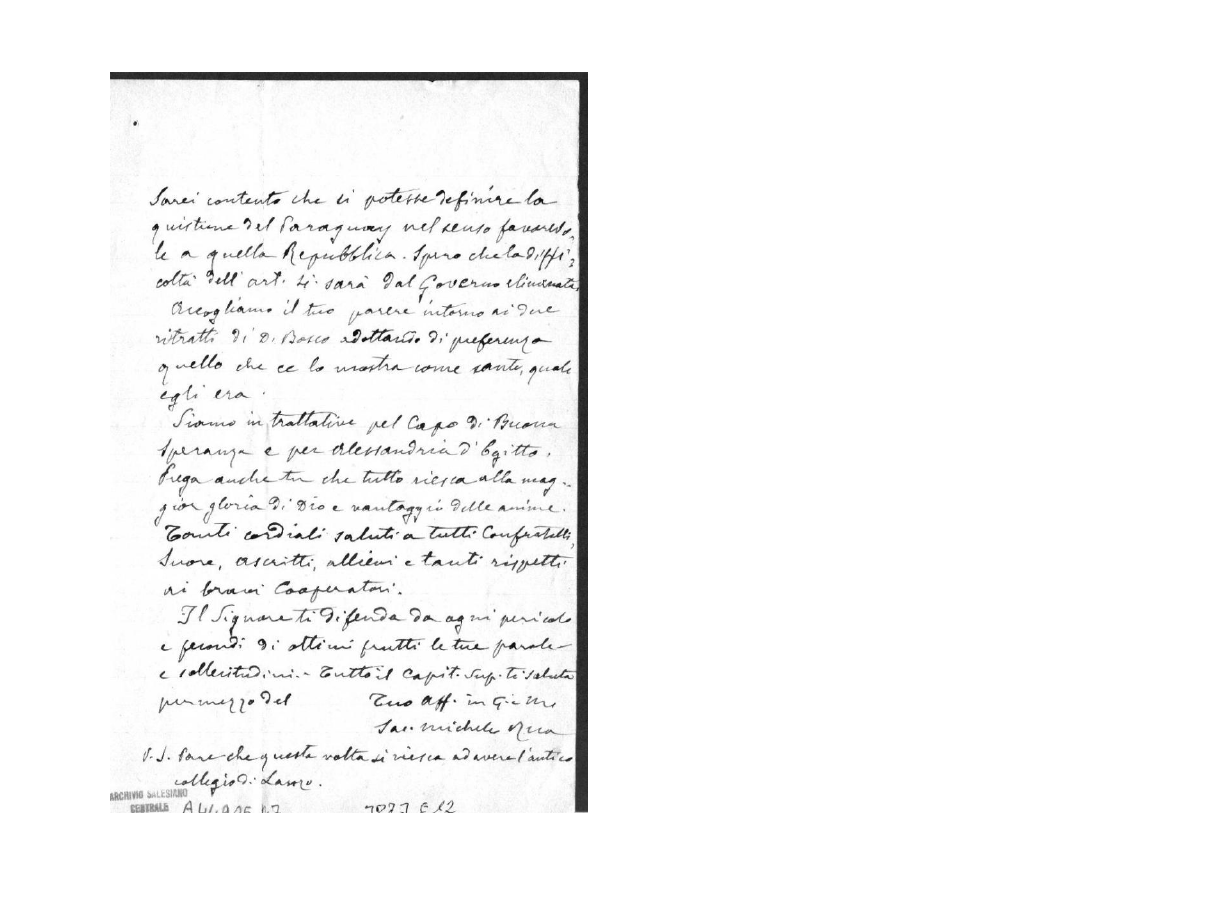 Sarei contento che si potesse definire la
quistione del Paraguay nel senso favorevo-
le a quella Repubblica. Spero che la diffi-
coltà dell'art. 4i. sarà dal Governo eliminata.
Accogliamo il tuo parere intorno ai due
ritratti di D. Bosco adottando di preferenza
quello che ce lo mostra come santo, quale
egli era.
Siamo in trattative pel Capo di Buona
Speranza e per Alessandria d'Egitto.
Prega anche tu che tutto riesca alla mag-
gior gloria di Dio e vantaggio delle anime.
Tanti cordiali saluti a tutti Confratelli,
Suore, ascritti, allievi e tanti rispetti
ai bravi Cooperatori.
Il Signore ti difenda da ogni pericolo
e fecondi di ottimi frutti le tue parole
e sollecitudini. - Tutto il Capit. Sup. ti saluta
per mezzo del Tuo Aff. in G. e M.
Sac. Michele Rua
P. S. Pare che questa volta si riesca ad avere l'antico
collegio di Lanzo.
ARCHIVIO SALESIANO
CENTRALE